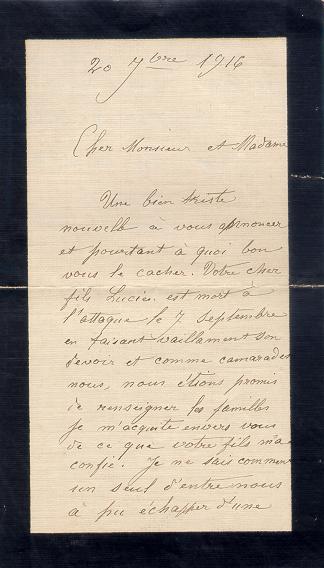 20 7bre 1916
Cher Monsieur et Madame
Une bien triste
nouvelle à vous annoncer
et pourtant à quoi bon
vous le cacher. Votre cher
fils Lucien est mort à
l'attaque le 7 septembre
en faisant vaillament son
devoir et comme camarades
nous, nous étions promis
de renseigner les familles
je m'acquite envers vous
de ce que votre fils m'a
confié. Je ne sais comment
un seul d'entre nous
à pu échapper d'une